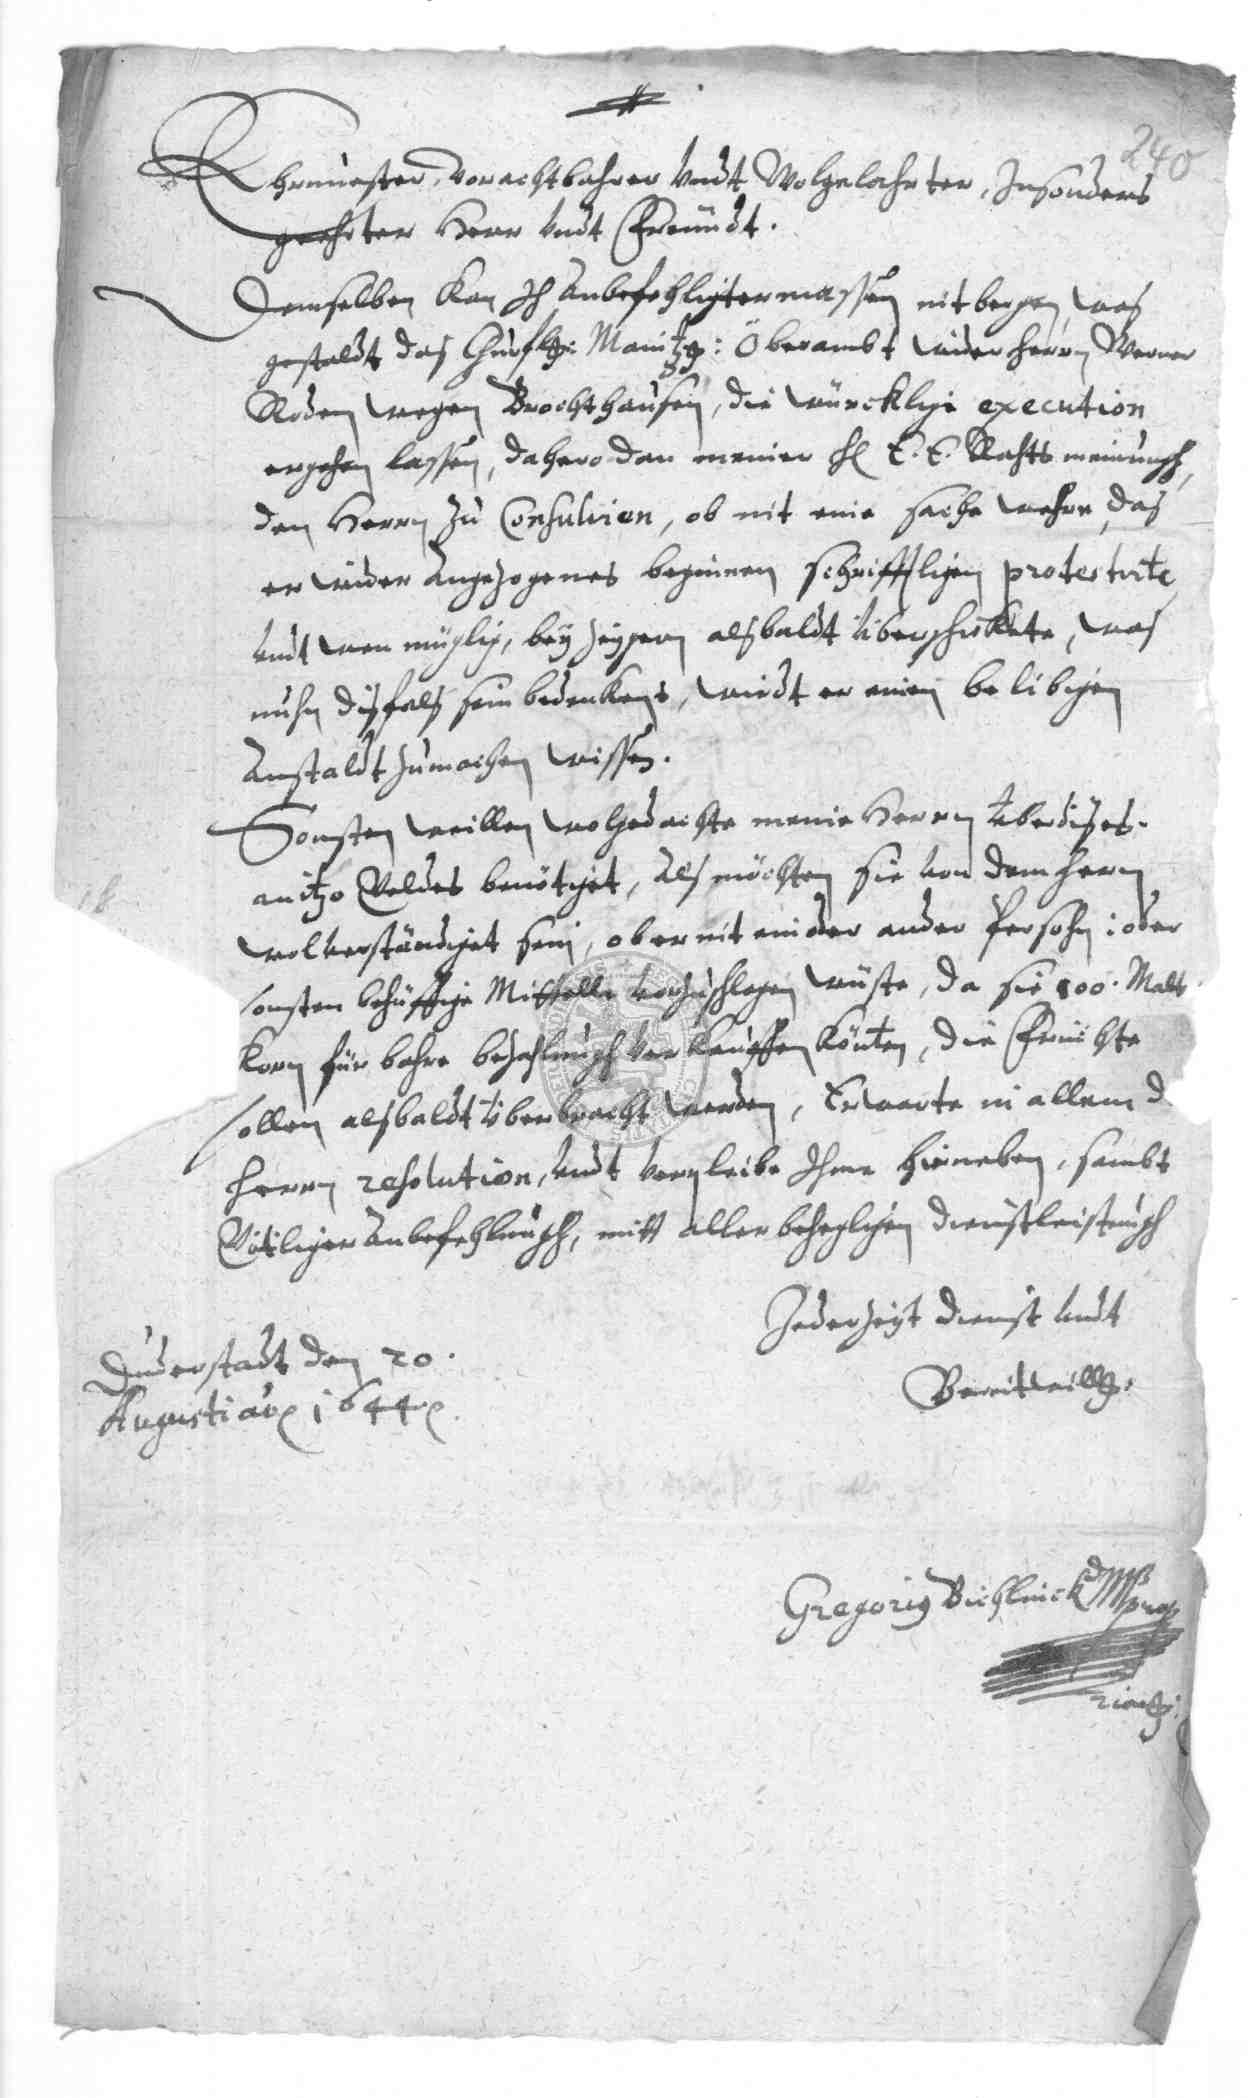 240
Ehrnuester, Vorachtbahrer Vndt Wolgelahrter, Insonders
geehrter Herr Vndt Freündt.
Demselben Kan Ich Anbefehligtermassen nit bergen, was
gestaldt das Churfl: Maintz: Oberambt wider herrn Werner
Roden wegen Brochthausen, die würcklige execution
ergehen lassen, dahero dan meiner H E. E. Rahts meinungh,
den Herrn zu Consulirn, ob nit eine sache wehre, das
er wider Angezogenes beginnen schrifftligen protestirte,
Vndt wan müglig, bey zeigern alsbaldt überschickete, was
nuhn disfals sein bedenkens, wirdt er einen beliebigen
Anstaldt zumachen wissen.
Sonsten weillen wolgedachte meine Herrn überdises
anitzo Geldes benötiget, Als möchten sie von dem herrn
wol verständiget sein, ob er nit ein oder ander Persohn oder
sonsten behüffige Mittelle vorzuschlagen wüste, da sie 800. Malt
Korn für bahre bezahlungh verkauffen könten, die Früchte
sollen alsbaldt überbracht werden, Erwarte in allem d
herrn resolution, Vndt verpleibe Ihme hirneben, sambt
Götliger Anbefehlungh, mitt aller behegligen dienstleistungh
Jederzeigt dienst Vndt
Bereitwillig.
Duderstadt den 20.
Augusti 1644
Gregorius